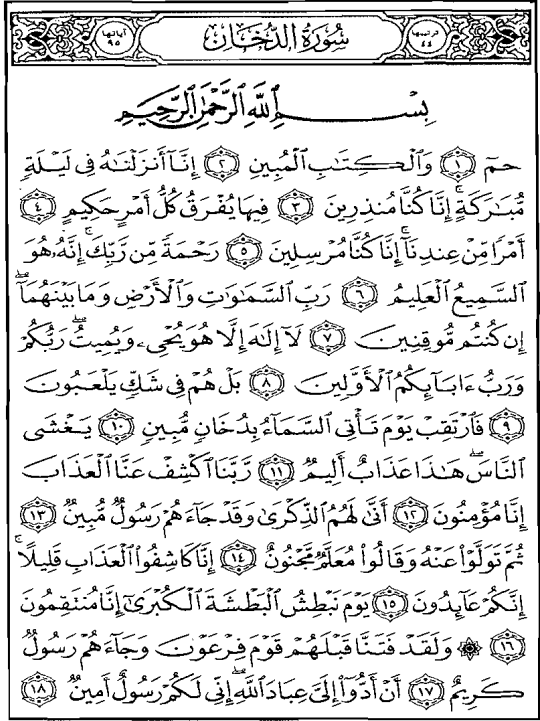 ترتيبها ٤٤ سُورَةُ الدُّخَانِ آياتها ٩٥
بِسْمِ ٱللَّهِ ٱلرَّحْمَٰنِ ٱلرَّحِيمِ
حمٓ ١ وَٱلْكِتَٰبِ ٱلْمُبِينِ ٢ إِنَّآ أَنزَلْنَٰهُ فِى لَيْلَةٍ
مُّبَٰرَكَةٍ ۚ إِنَّا كُنَّا مُنذِرِينَ ٣ فِيهَا يُفْرَقُ كُلُّ أَمْرٍ حَكِيمٍ ٤
أَمْرًا مِّنْ عِندِنَآ ۚ إِنَّا كُنَّا مُرْسِلِينَ ٥ رَحْمَةً مِّن رَّبِّكَ ۚ إِنَّهُۥ هُوَ
ٱلسَّمِيعُ ٱلْعَلِيمُ ٦ رَبِّ ٱلسَّمَٰوَٰتِ وَٱلْأَرْضِ وَمَا بَيْنَهُمَآ ۖ
إِن كُنتُم مُّوقِنِينَ ٧ لَآ إِلَٰهَ إِلَّا هُوَ يُحْىِۦ وَيُمِيتُ ۖ رَبُّكُمْ
وَرَبُّ ءَابَآئِكُمُ ٱلْأَوَّلِينَ ٨ بَلْ هُمْ فِى شَكٍّ يَلْعَبُونَ
٩ فَٱرْتَقِبْ يَوْمَ تَأْتِى ٱلسَّمَآءُ بِدُخَانٍ مُّبِينٍ ١٠ يَغْشَى
ٱلنَّاسَ ۖ هَٰذَا عَذَابٌ أَلِيمٌ ١١ رَّبَّنَا ٱكْشِفْ عَنَّا ٱلْعَذَابَ
إِنَّا مُؤْمِنُونَ ١٢ أَنَّىٰ لَهُمُ ٱلذِّكْرَىٰ وَقَدْ جَآءَهُمْ رَسُولٌ مُّبِينٌ ١٣
ثُمَّ تَوَلَّوْا۟ عَنْهُ وَقَالُوا۟ مُعَلَّمٌ مَّجْنُونٌ ١٤ إِنَّا كَاشِفُوا۟ ٱلْعَذَابِ قَلِيلًا ۚ
إِنَّكُمْ عَآئِدُونَ ١٥ يَوْمَ نَبْطِشُ ٱلْبَطْشَةَ ٱلْكُبْرَىٰٓ إِنَّا مُنتَقِمُونَ
١٦ ۞ وَلَقَدْ فَتَنَّا قَبْلَهُمْ قَوْمَ فِرْعَوْنَ وَجَآءَهُمْ رَسُولٌ
كَرِيمٌ ١٧ أَنْ أَدُّوٓا۟ إِلَىَّ عِبَادَ ٱللَّهِ ۖ إِنِّى لَكُمْ رَسُولٌ أَمِينٌ ١٨